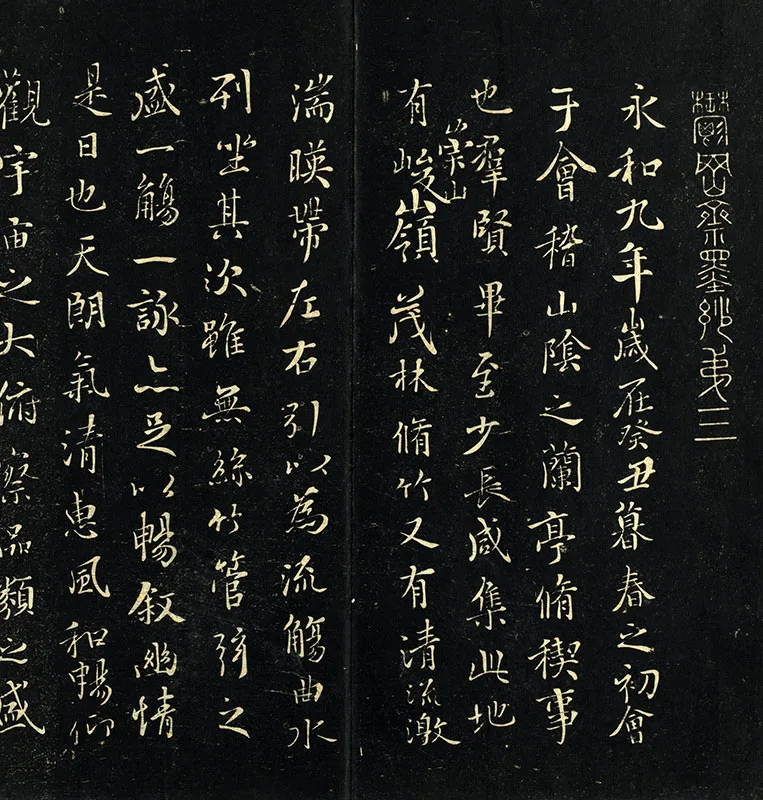 鬱岡齋墨妙弟三
永和九年歲在癸丑暮春之初會
于會稽山陰之蘭亭脩稧事
也羣賢畢至少長咸集此地
有崇山峻嶺茂林脩竹又有清流激
湍暎帶左右引以為流觴曲水
列坐其次雖無絲竹管弦之
盛一觴一詠亦足以暢叙幽情
是日也天朗氣清惠風和暢仰
觀宇宙之大俯察品類之盛